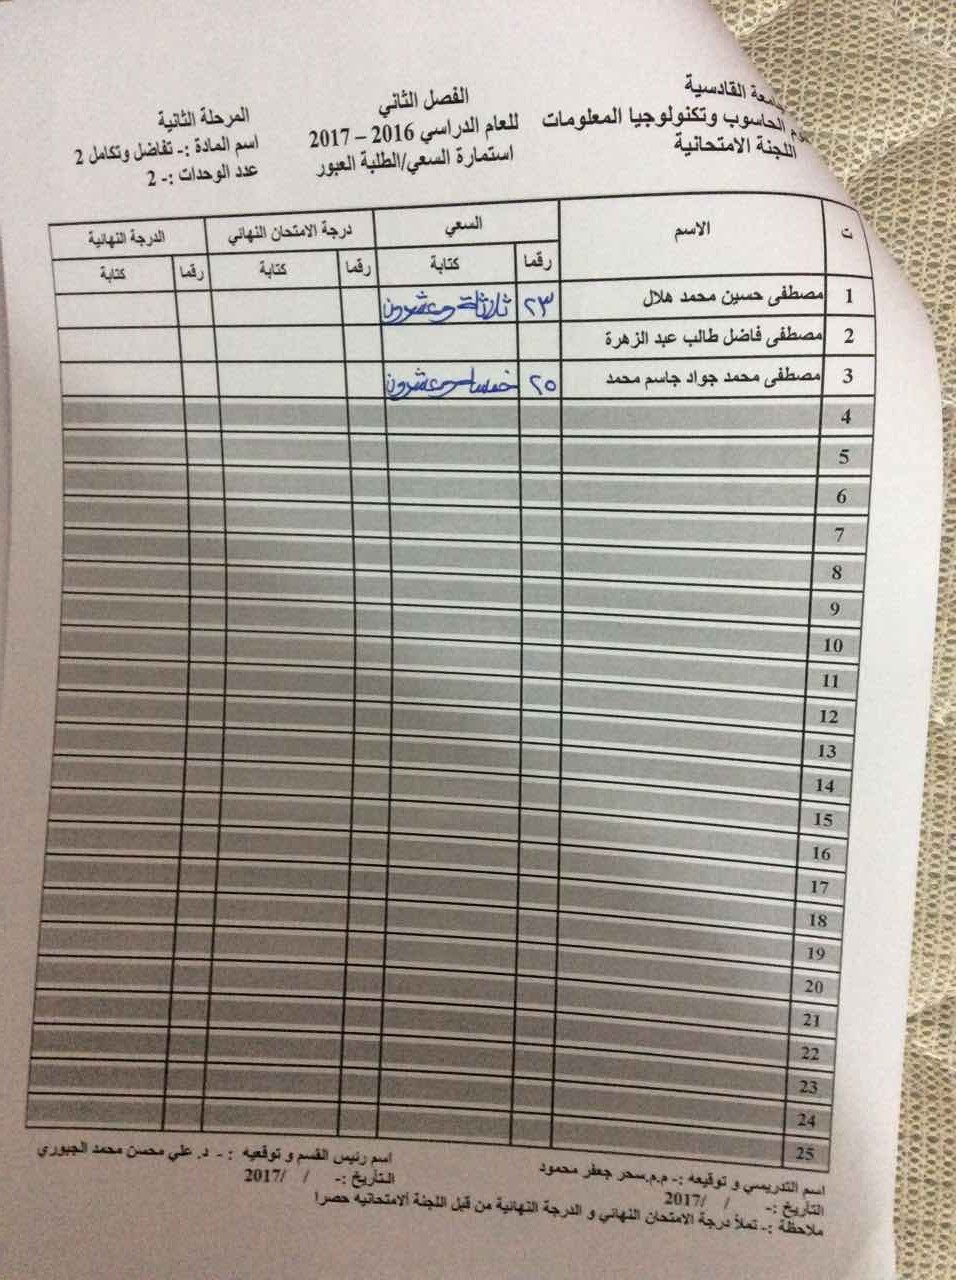 القادسية
الحاسوب وتكنولوجيا المعلومات
اللجنة الامتحانية
الفصل الثاني
للعام الدراسي 2016 – 2017
استمارة السعي/الطلبة العبور
المرحلة الثانية
اسم المادة :- تفاضل وتكامل 2
عدد الوحدات :- 2
ت الاسم السعي درجة الامتحان النهائي الدرجة النهائية
رقما كتابة رقما كتابة رقما كتابة
1 مصطفى حسين محمد هلال ٢٣ ثلاثة وعشرون
2 مصطفى فاضل طالب عبد الزهرة
3 مصطفى محمد جواد جاسم محمد ٢٥ خمسة وعشرون
4
5
6
7
8
9
10
11
12
13
14
15
16
17
18
19
20
21
22
23
24
25
اسم التدريسي و توقيعه :- م.م.سحر جعفر محمود
التأريخ :- / /2017
اسم رئيس القسم و توقعيه :- د. علي محسن محمد الجبوري
التأريخ :- / /2017
ملاحظة :- تملأ درجة الامتحان النهائي و الدرجة النهائية من قبل اللجنة ألامتحانيه حصرا